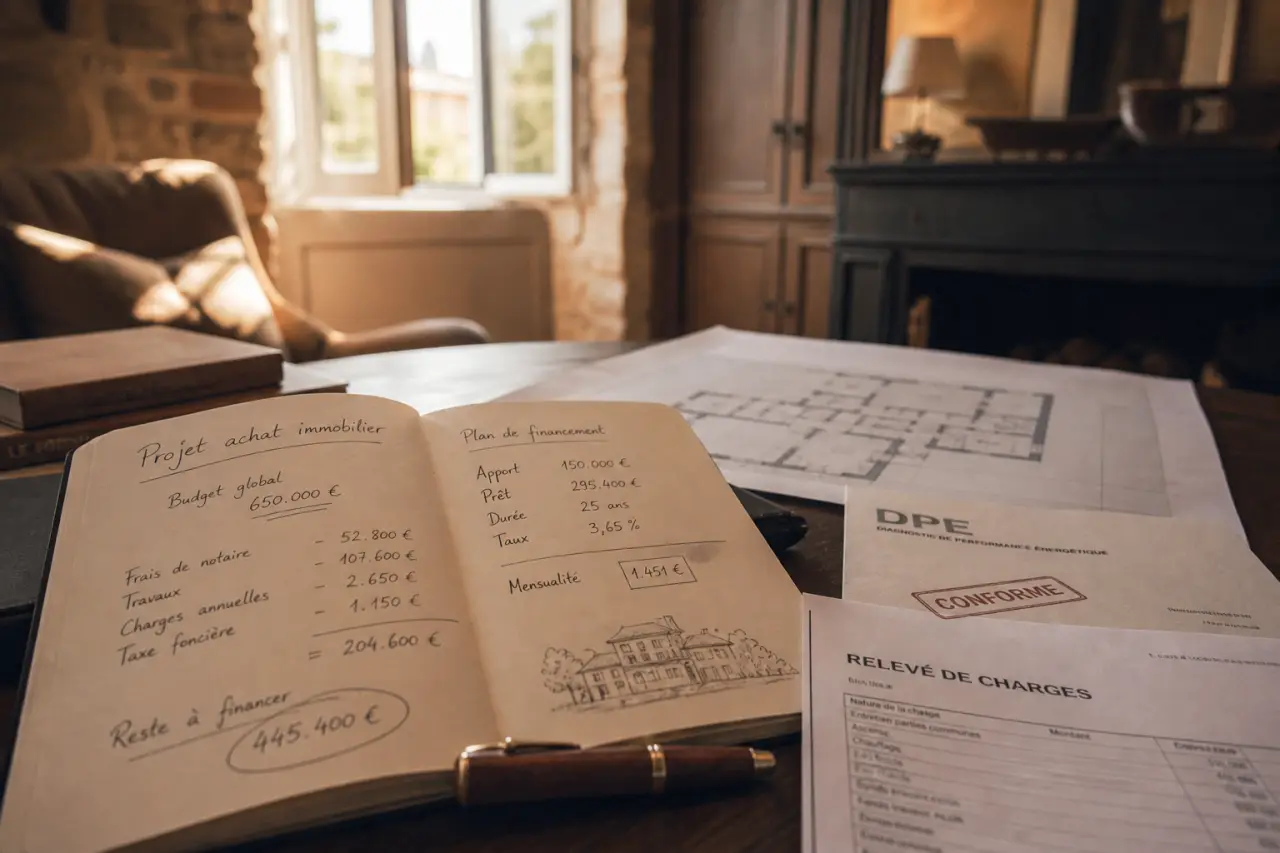 Projet achat immobilier
Budget global
650.000 €
Frais de notaire - 52.800 €
Travaux - 107.600 €
Charges annuelles - 2.650 €
Taxe foncière - 1.150 €
= 204.600 €
Reste à financer
445.400 €
Plan de financement
Apport 150.000 €
Prêt 295.400 €
Durée 25 ans
Taux 3,65 %
Mensualité 1.451 €
DPE
DIAGNOSTIC DE PERFORMANCE ÉNERGÉTIQUE
CONFORME
RELEVÉ DE CHARGES
Nature de la charge
Montant
Entretien parties communes
Chauffage